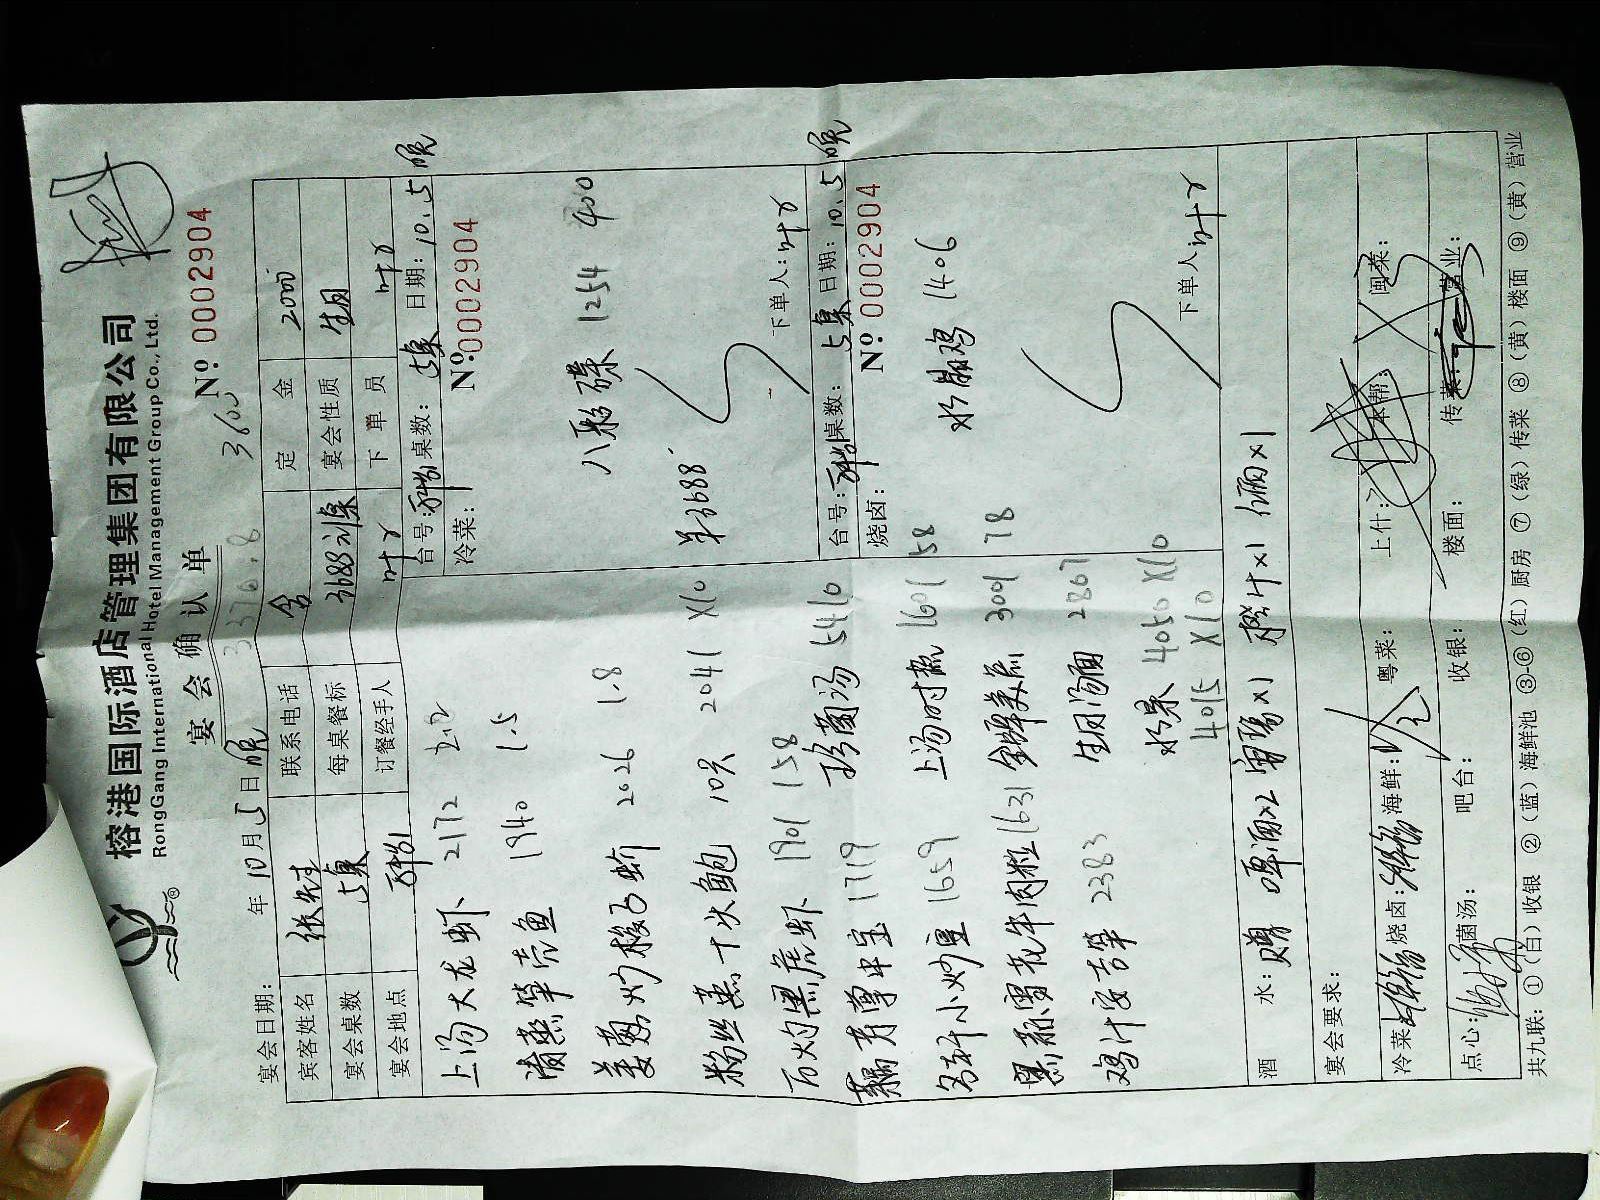 榕港国际酒店管理集团有限公司
RongGang International Hotel Management Group Co., Ltd.
宴会确认单
3600
Nº 0002904
宴会日期： 年10月5日晚 3376.8
宾客姓名 张先生 联系电话 含 定金 2000
宴会桌数 5桌 每桌餐标 3688 宴会性质 生日
宴会地点 订餐经手人 叶 下单员 叶
台号： 桌数：5桌 日期：10.5晚
冷菜： Nº 0002904
上汤大龙虾 2172 2.2
清蒸笋壳鱼 1940 1.5
八彩碟 1254 400
姜葱炒梭子蟹 2026 1.8
单3688
粉丝蒸十头鲍 10只 2041 X10
下单人：叶
白灼黑虎虾 1901 158
珍菌汤 5410
台号： 桌数：5桌 日期：10.5晚
烧卤： Nº 0002904
1719
上汤时蔬 1601 58
水晶鸡 1406
小炒 1659
1631
美点 3001 78
鸡汁 笋 2383
生日汤面 2867
水果 4050 X10
4015 X10
下单人：叶
酒水：赠 啤酒X2 雪碧X1 橙汁X1 X1
宴会要求：
冷菜： 烧卤： 海鲜： 粤菜： 上什： 本帮： 闽菜：
点心： 菌汤： 吧台： 收银： 楼面： 传菜： 营业：
共九联：①(白)收银 ②(蓝)海鲜池 ③-⑥(红)厨房 ⑦(绿)传菜 ⑧(黄)楼面 ⑨(黄)营业